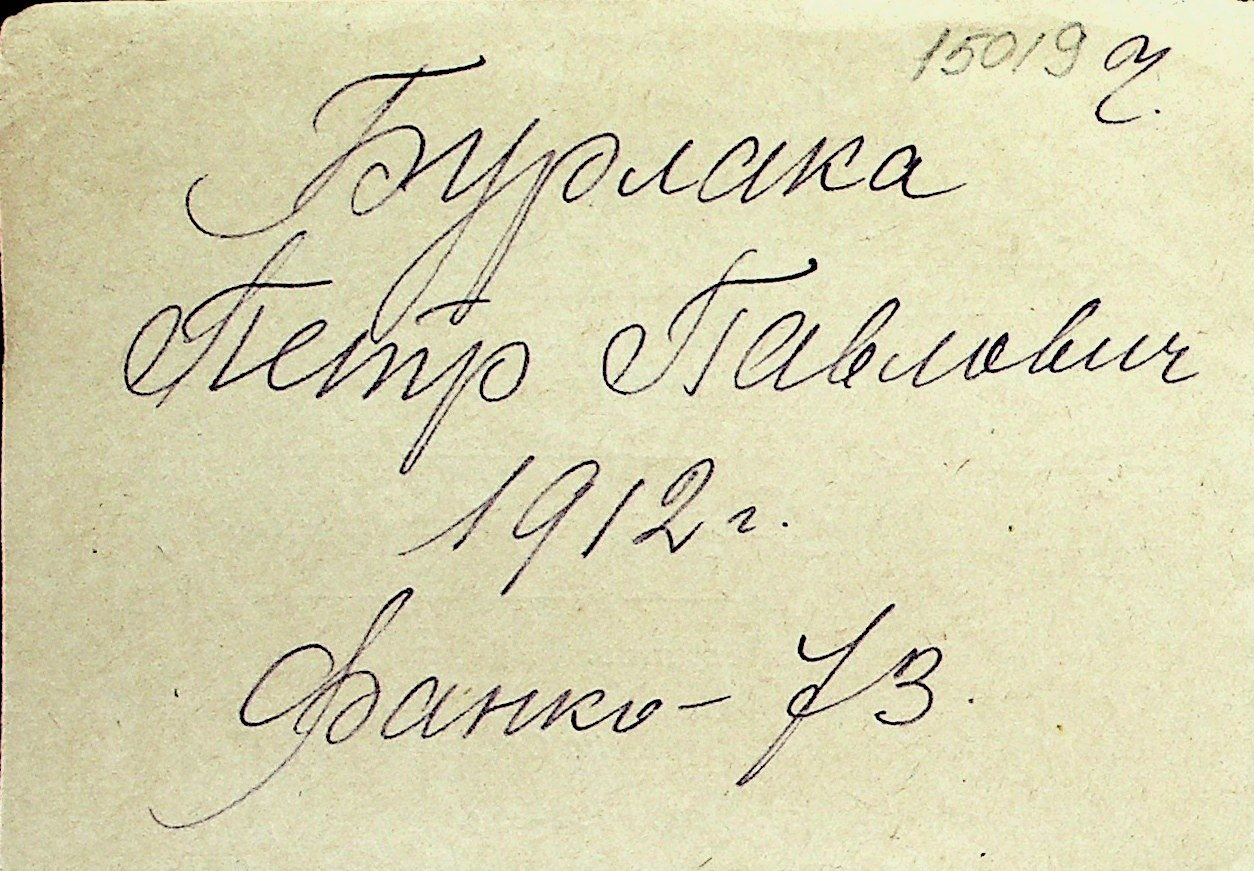 15019 Ч.
Бурлака
Петр Павлович
1912 г.
Франко - 73.